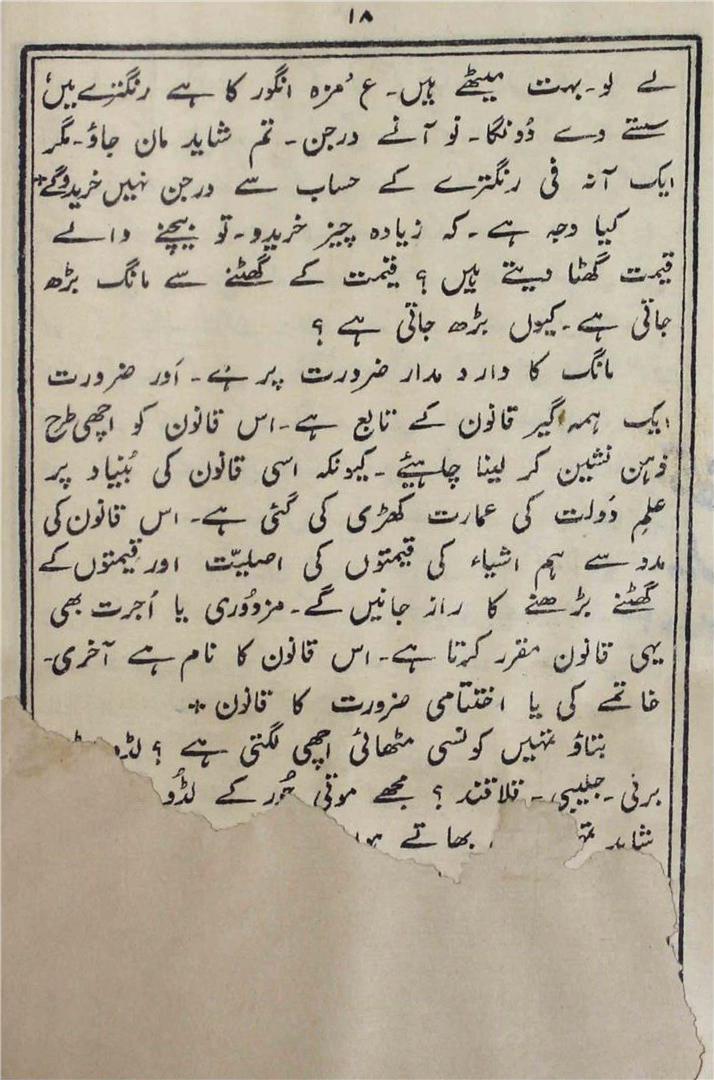 ۱۸
لے لو۔ بہت میٹھے ہیں۔ ع مزہ انگور کا ہے رنگترے میں
سستے دے دُونگا۔ نو آنے درجن۔ تم شاید مان جاؤ۔ مگر
ایک آنہ فی رنگترے کے حساب سے درجن نہیں خریدو گے *
کیا وجہ ہے۔ کہ زیادہ چیز خریدو۔ تو بیچنے والے
قیمت گھٹا دیتے ہیں ؟ قیمت کے گھٹنے سے مانگ بڑھ
جاتی ہے۔ کیوں بڑھ جاتی ہے ؟
مانگ کا دار و مدار ضرورت پر ہے۔ اَور ضرورت
ایک ہمہ گیر قانون کے تابع ہے۔ اس قانون کو اچھی طرح
ذہن نشین کر لینا چاہیئے۔ کیونکہ اسی قانون کی بُنیاد پر
علمِ دَولت کی عمارت کھڑی کی گئی ہے۔ اس قانون کی
مدد سے ہم اشیاء کی قیمتوں کی اصلیّت اور قیمتوں کے
گھٹنے بڑھنے کا راز جانیں گے۔ مزدُوری یا اُجرت بھی
یہی قانون مقرر کرتا ہے۔ اس قانون کا نام ہے آخری۔
خاتمے کی یا اختتامی ضرورت کا قانون *
بتاؤ تمہیں کونسی مٹھائی اچھی لگتی ہے ؟ لڈو
برفی۔ جلیبی۔ قلاقند ؟ مجھے موتی چُور کے لڈُو
شاید بھاتے